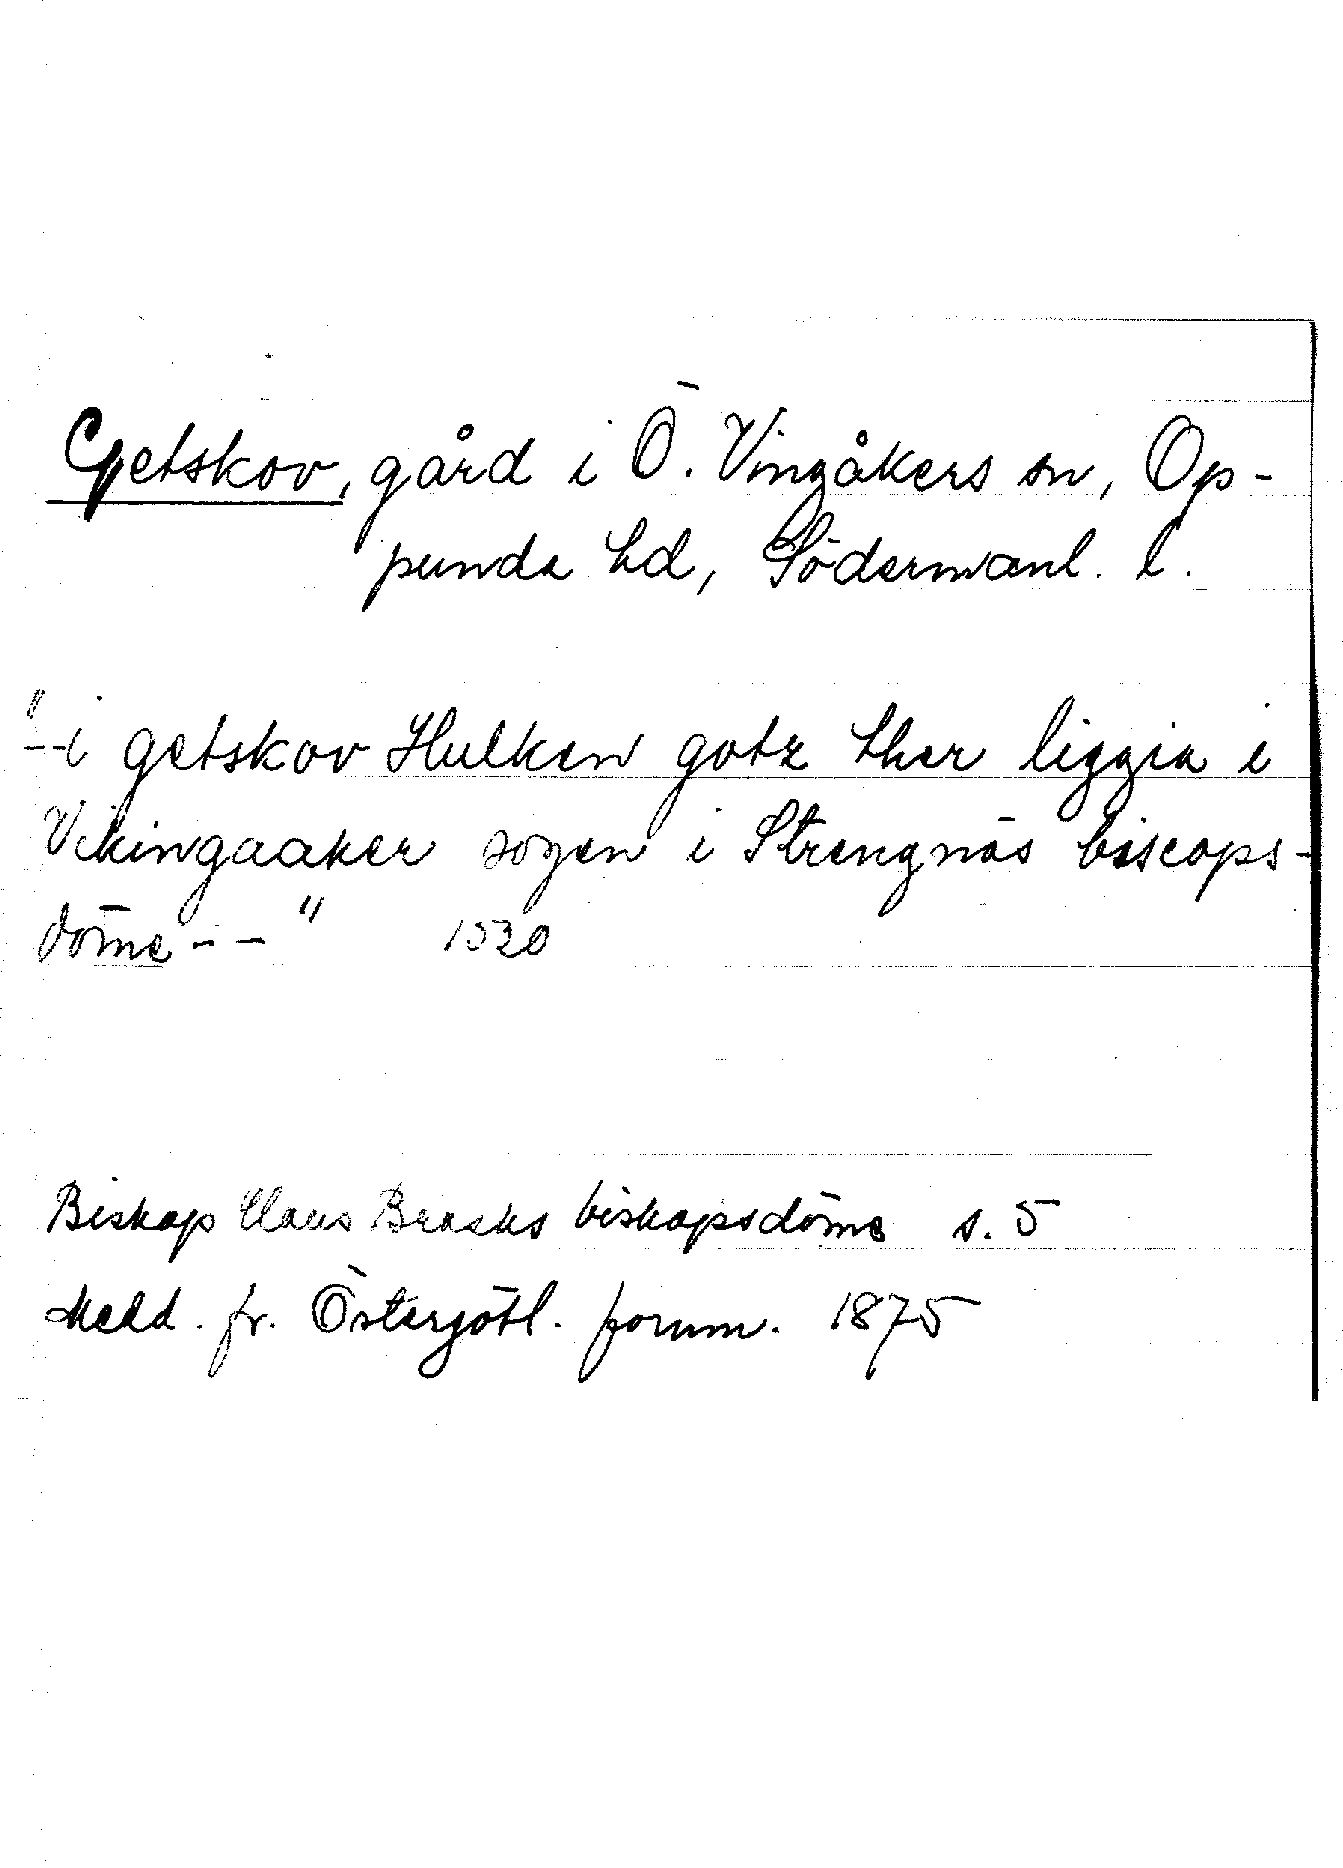 Getskov, gård i Ö. Vingåkers sn, Op-
punda hd, Södermanl. l.
"--i getskov Hulken gotz ther liggia i
Vikingaaker sogen i Strengnäs biscops-
döme--" 1520
Biskop Claus Brasks biskopsdöme s. 5
Medd. fr. Östergötl. fornm. 1875